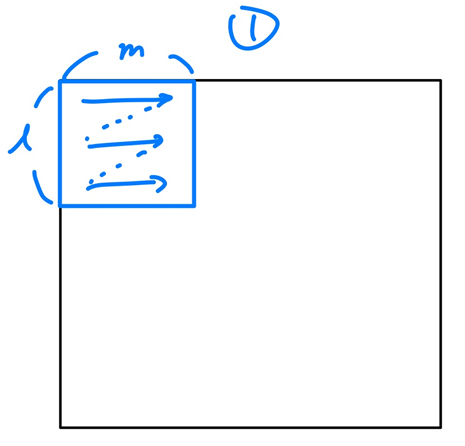 ①
m
l